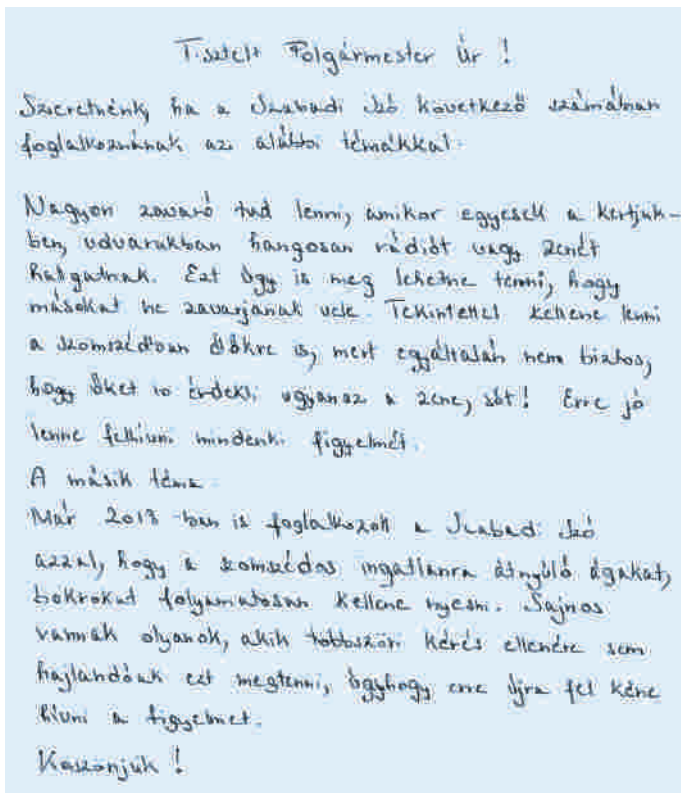 Tisztelt Polgármester Úr!
Szeretnénk, ha a Szabadi Szó következő számában
foglalkoznának az alábbi témákkal.
Nagyon zavaró tud lenni, amikor egyesek a kertjük-
ben, udvarukban hangosan rádiót vagy zenét
hallgatnak. Ezt úgy is meg lehetne tenni, hogy
másokat ne zavarjanak vele. Tekintettel kellene lenni
a szomszédban élőkre is, mert egyáltalán nem biztos,
hogy őket is érdekli ugyanaz a zene, sőt! Erre jó
lenne felhívni mindenki figyelmét.
A másik téma
Már 2013-ban is foglalkozott a Szabadi Szó
azzal, hogy a szomszédos ingatlanra átnyúló ágakat,
bokrokat folyamatosan kellene nyesni. Sajnos
vannak olyanok, akik többszöri kérés ellenére sem
hajlandóak ezt megtenni, úgyhogy erre újra fel kéne
hívni a figyelmet.
Köszönjük!